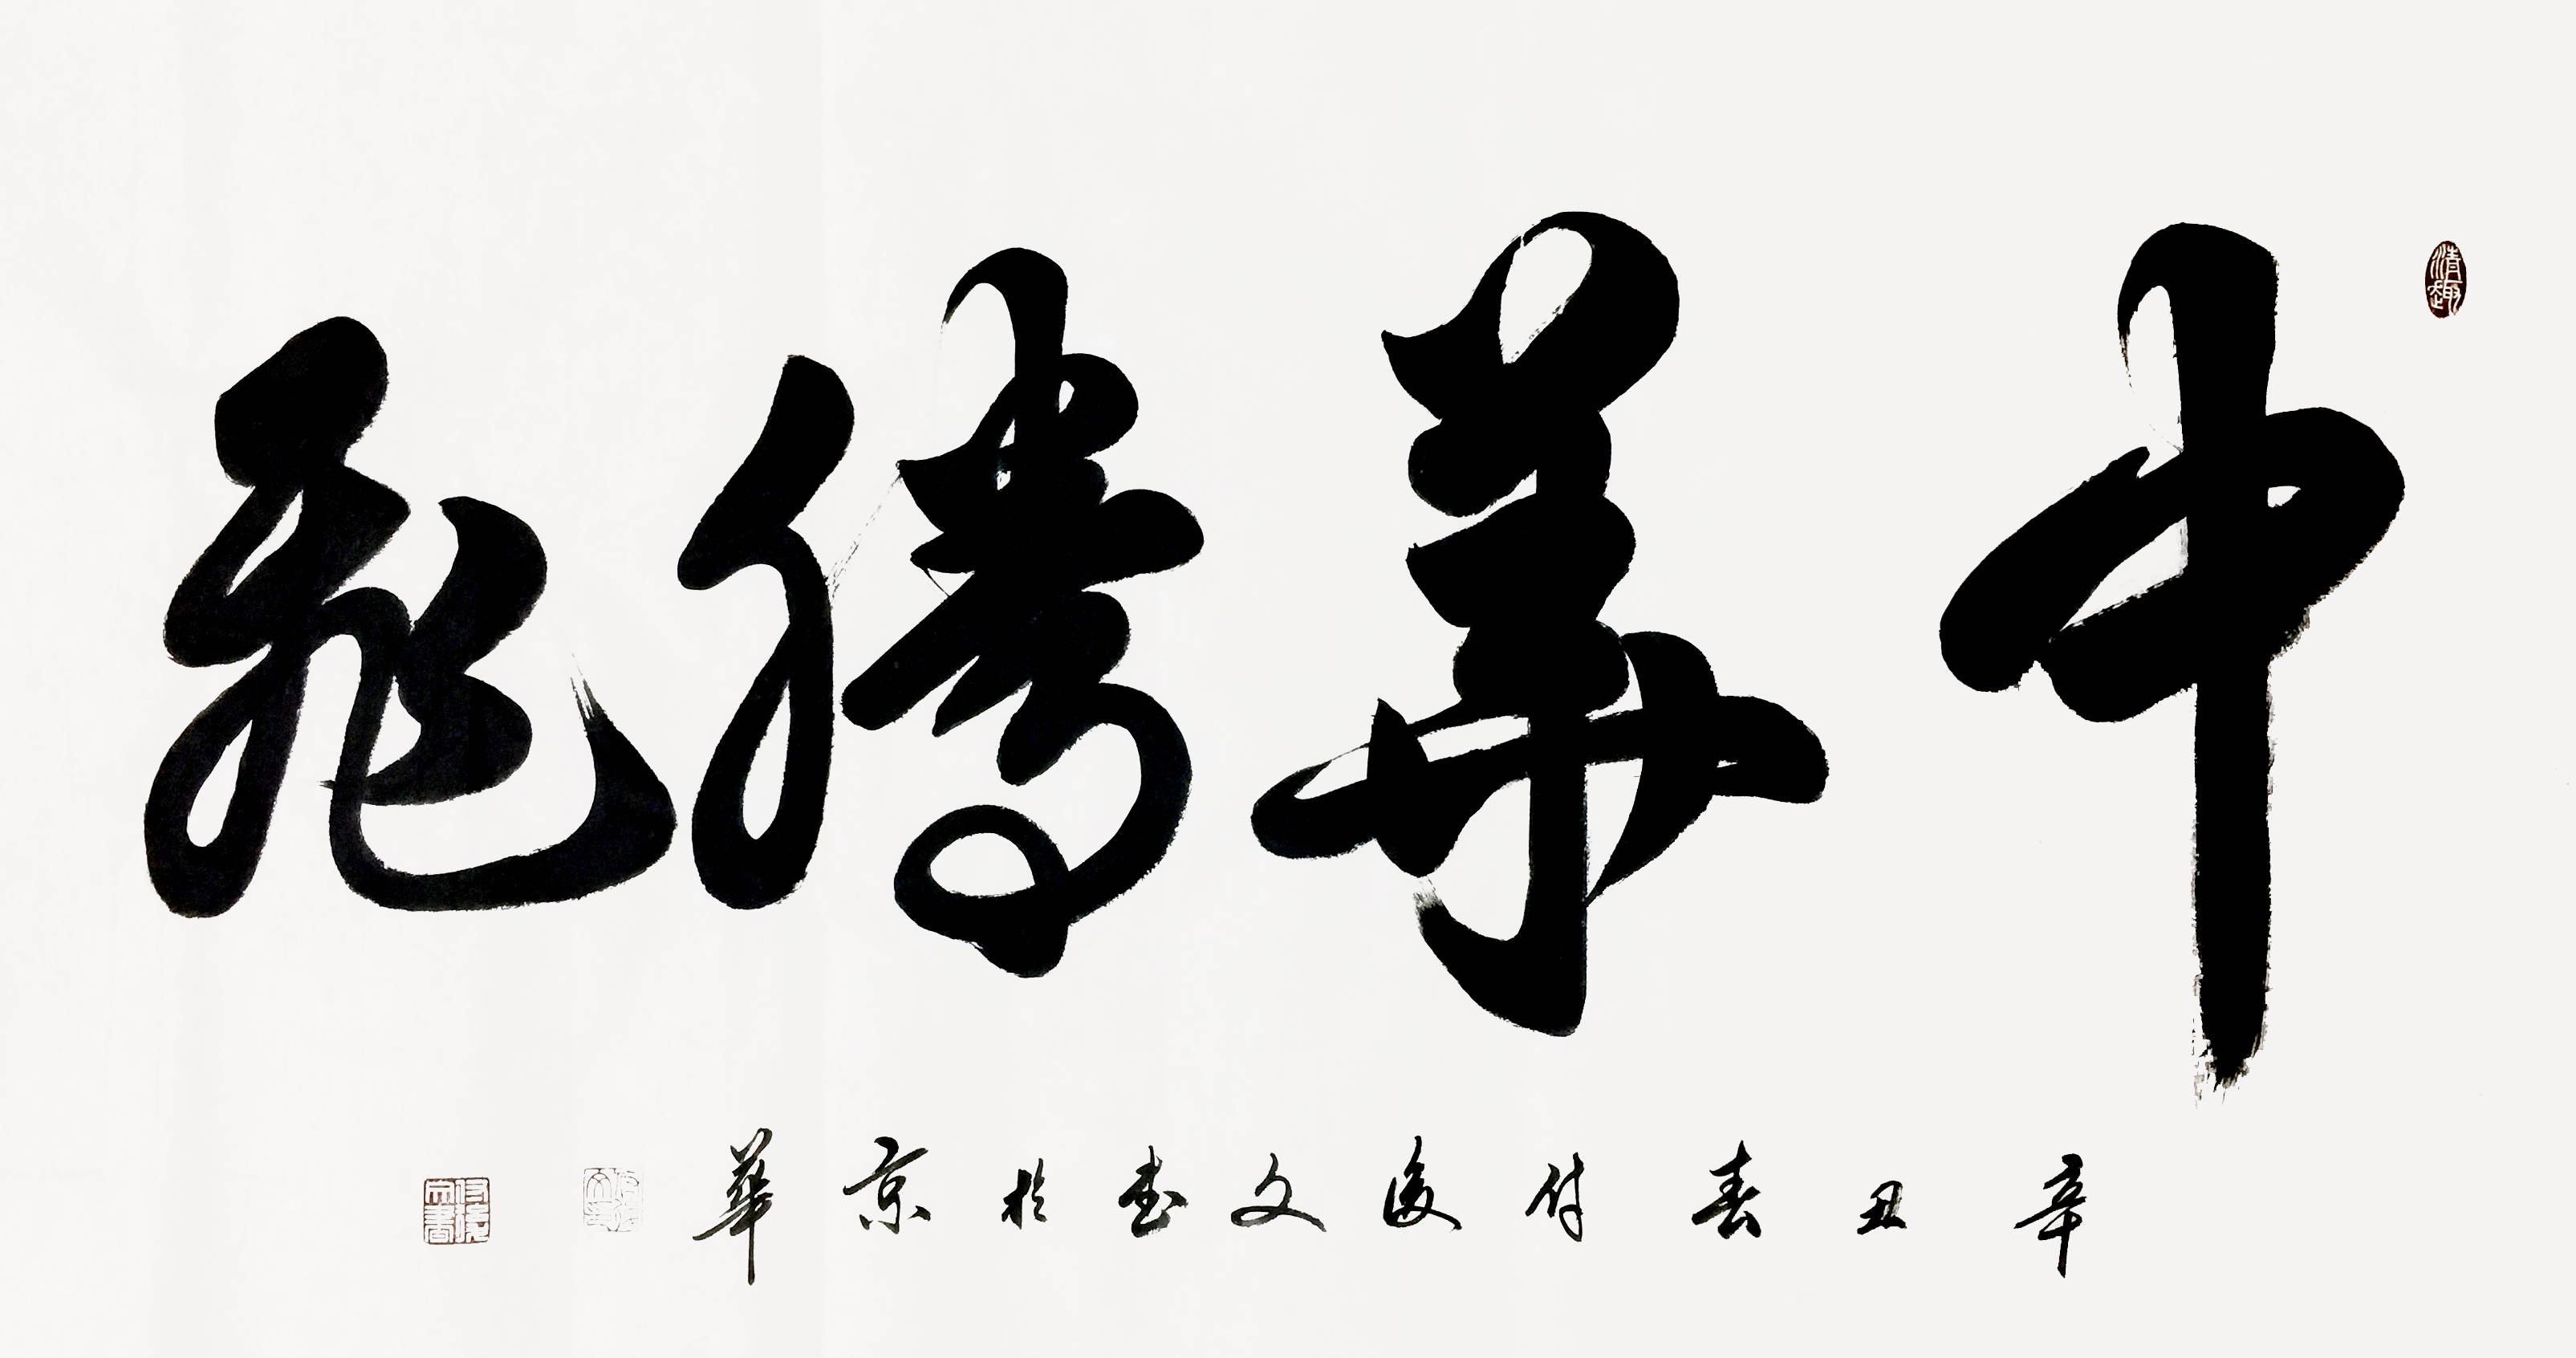 中華騰飛
辛丑春付俊文書於京華
清趣